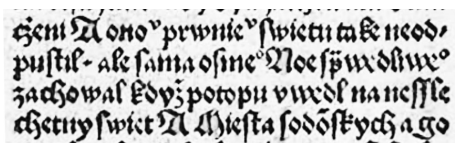 čżeni A ono° prwnie° swietu take neod-
pustil- ale sama osme° Noe sp̄wedliwe°
zachowal když potopu vwedl na nessle
chetny swiet A Miesta sodōskych a go